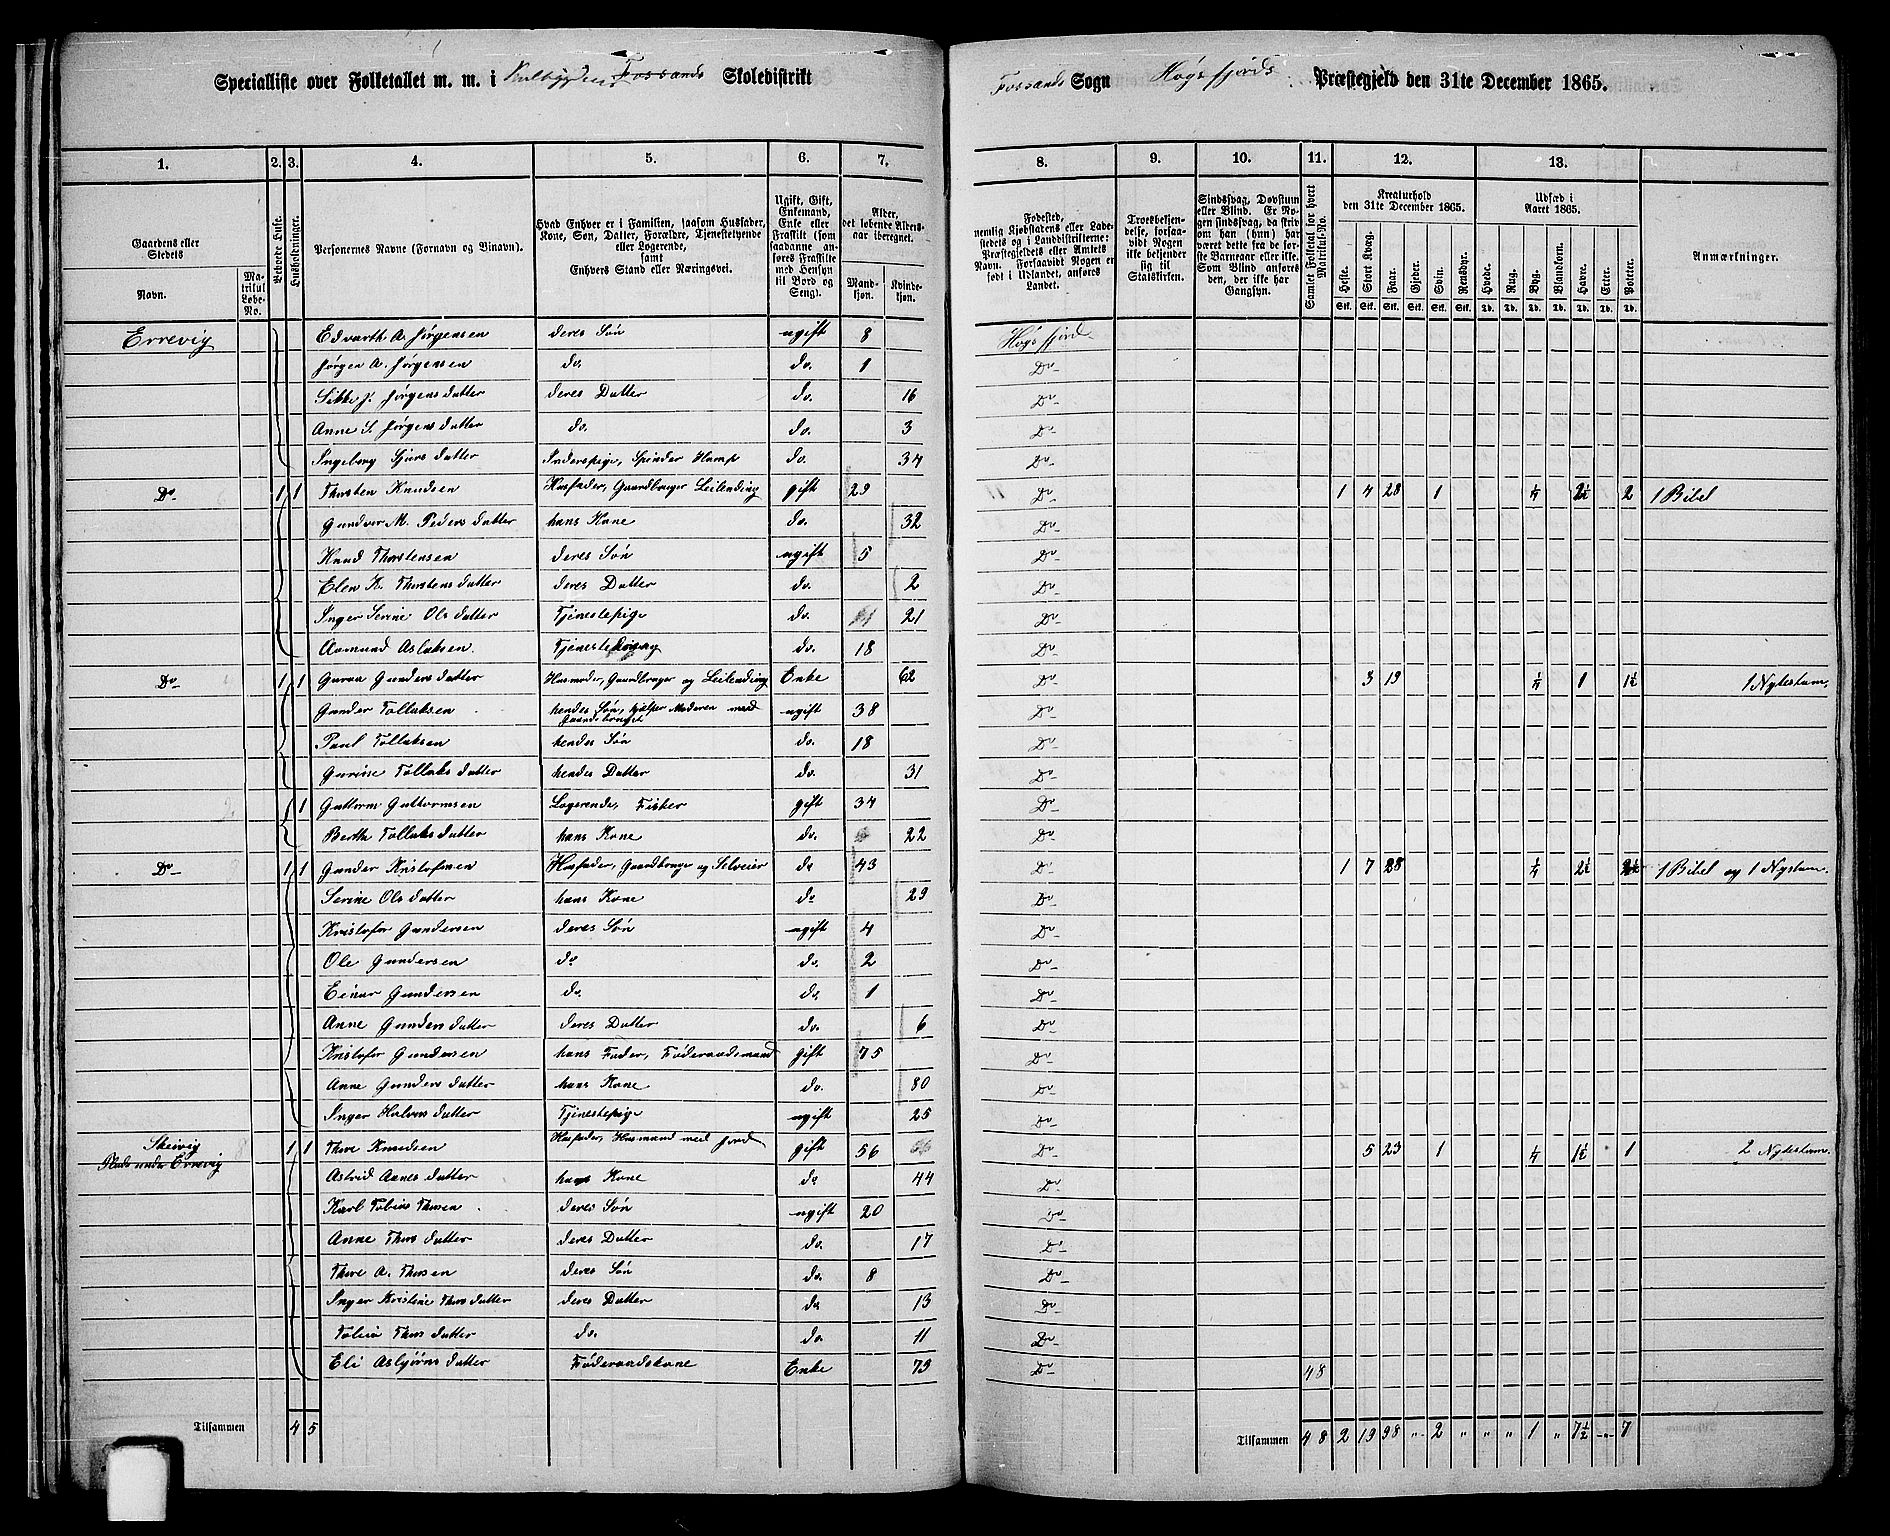 Specialliste over Folketallet m. m. i Fossands Skoledistrikt
Fossands Sogn Høgsfjords Præstegjeld den 31te December 1865.
1. 2. 3. 4. 5. 6. 7. 8. 9. 10. 11. 12. 13.
Gaardens eller Stedets
Navn.
Matrikul Løbe-No.
Bebode Huse.
Husholdninger.
Personernes Navne (Fornavn og Binavn).
Hvad Enhver er i Familien, saasom Husfader, Kone, Søn, Datter, Forældre, Tjenestetyende eller Logerende, samt Enhvers Stand eller Næringsvei.
Ugift, Gift, Enkemand, Enke eller Fraskilt (som saadanne anføres Fraskilte med Hensyn til Bord og Seng).
Alder, det løbende Aldersaar iberegnet.
Mandkjøn. Kvindekjøn.
Fødested, nemlig Kjøbstadens eller Ladestedets og i Landdistrikterne: Præstegjeldets eller Amtets Navn. Forsaavidt Nogen er født i Udlandet, anføres Landet.
Troesbekjendelse, forsaavidt Nogen ikke bekjender sig til Statskirken.
Sindssvag, Døvstum eller Blind. Er Nogen sindssvag, da skriv om han (hun) har været dette fra de første Barneaar eller ikke. Som Blind anføres den, der ikke har Gangsyn.
Samlet Folketal for hvert Matrikul-No.
Kreaturhold den 31te December 1865.
Heste. Stort Kvæg. Faar. Gjeder. Svin. Rensdyr.
Udsæd i Aaret 1865.
Hvede. Rug. Byg. Blandkorn. Havre. Erter. Poteter.
Anmærkninger.
Errevig Edvarth A. Jørgensen deres Søn ugift 8 Høgsfjord
Jørgen A. Jørgensen do. do. 1 Do
Sikke J. Jørgensdatter deres Datter do. 16 Do
Anne S. Jørgensdatter do. do. 3 Do
Ingeborg Sjursdatter Inderstpige, Spinder Hamp do. 34 Do
Do 1 1 Thorsten Knudsen Husfader, Gaardbruger Leilending gift 29 Do 1 4 28 1 1/4 2½ 2 1 Bibel
Gundvor M. Pedersdatter hans Kone do. 32 Do
Knud Thorstensen deres Søn ugift 5 Do
Elen K. Thorstensdatter deres Datter do. 2 Do
Inger Serine Olsdatter Tjenestepige do. 21 Do
Aamund Aslaksen Tjenestedreng do. 18 Do
Do 1 1 Guroa Gundersdatter Husmoder, Gaardbruger og Leilending Enke 62 Do 3 19 1/4 1 1½ 1 Nytestam.
Gunder Tollaksen hendes Søn, hjelper Moderen med Gaardsbruget ugift 38 Do
Paul Tollaksen hendes Søn do. 18 Do
Gurine Tollaksdatter hendes Datter do. 31 Do
1 Guttorm Guttormsen Logerende, Fisker gift 34 Do
Berthe Tollaksdatter hans Kone do. 22 Do
Do 1 1 Gunder Kristofersen Husfader, Gaardbruger og Selveier do 43 Do 1 7 28 1/4 2½ 2½ 1 Bibel og 1 Nystam.
Serine Olsdatter hans Kone do 29 Do
Kristofer Gundersen deres Søn ugift 4 Do
Ole Gundersen do do. 2 Do
Einar Gundersen do. do 1 Do
Anne Gundersdatter deres Datter do. 6 Do
Kristofer Gundersen hans Fader, Føderaadsmand gift 75 Do
Anne Gundersdatter hans Kone do. 80 Do
Inger Halvorsdatter Tjenestepige ugift 25 Do
Skeivig 1 1 Thore Knudsen Husfader, Husmand med Jord gift 56 Do 5 23 1 1/4 1½ 1 2 Nytestam.
Plads under Errevig
Astrid Aanesdatter hans Kone do 44 Do
Karl Tobias Thorsen deres Søn ugift 20 Do
Anne Thorsdatter deres Datter do. 17 Do
Thore A. Thorsen deres Søn do. 8 Do
Inger Kristine Thorsdatter deres Datter do 13 Do
Tobia Thorsdatter do. do. 11 Do
Eli Asbjørnsdatter Føderaadskone Enke 79 Do 48
Tilsammen 4 5 Tilsammen 48 2 19 98 " 2 " " " 1 " 7½ " 7